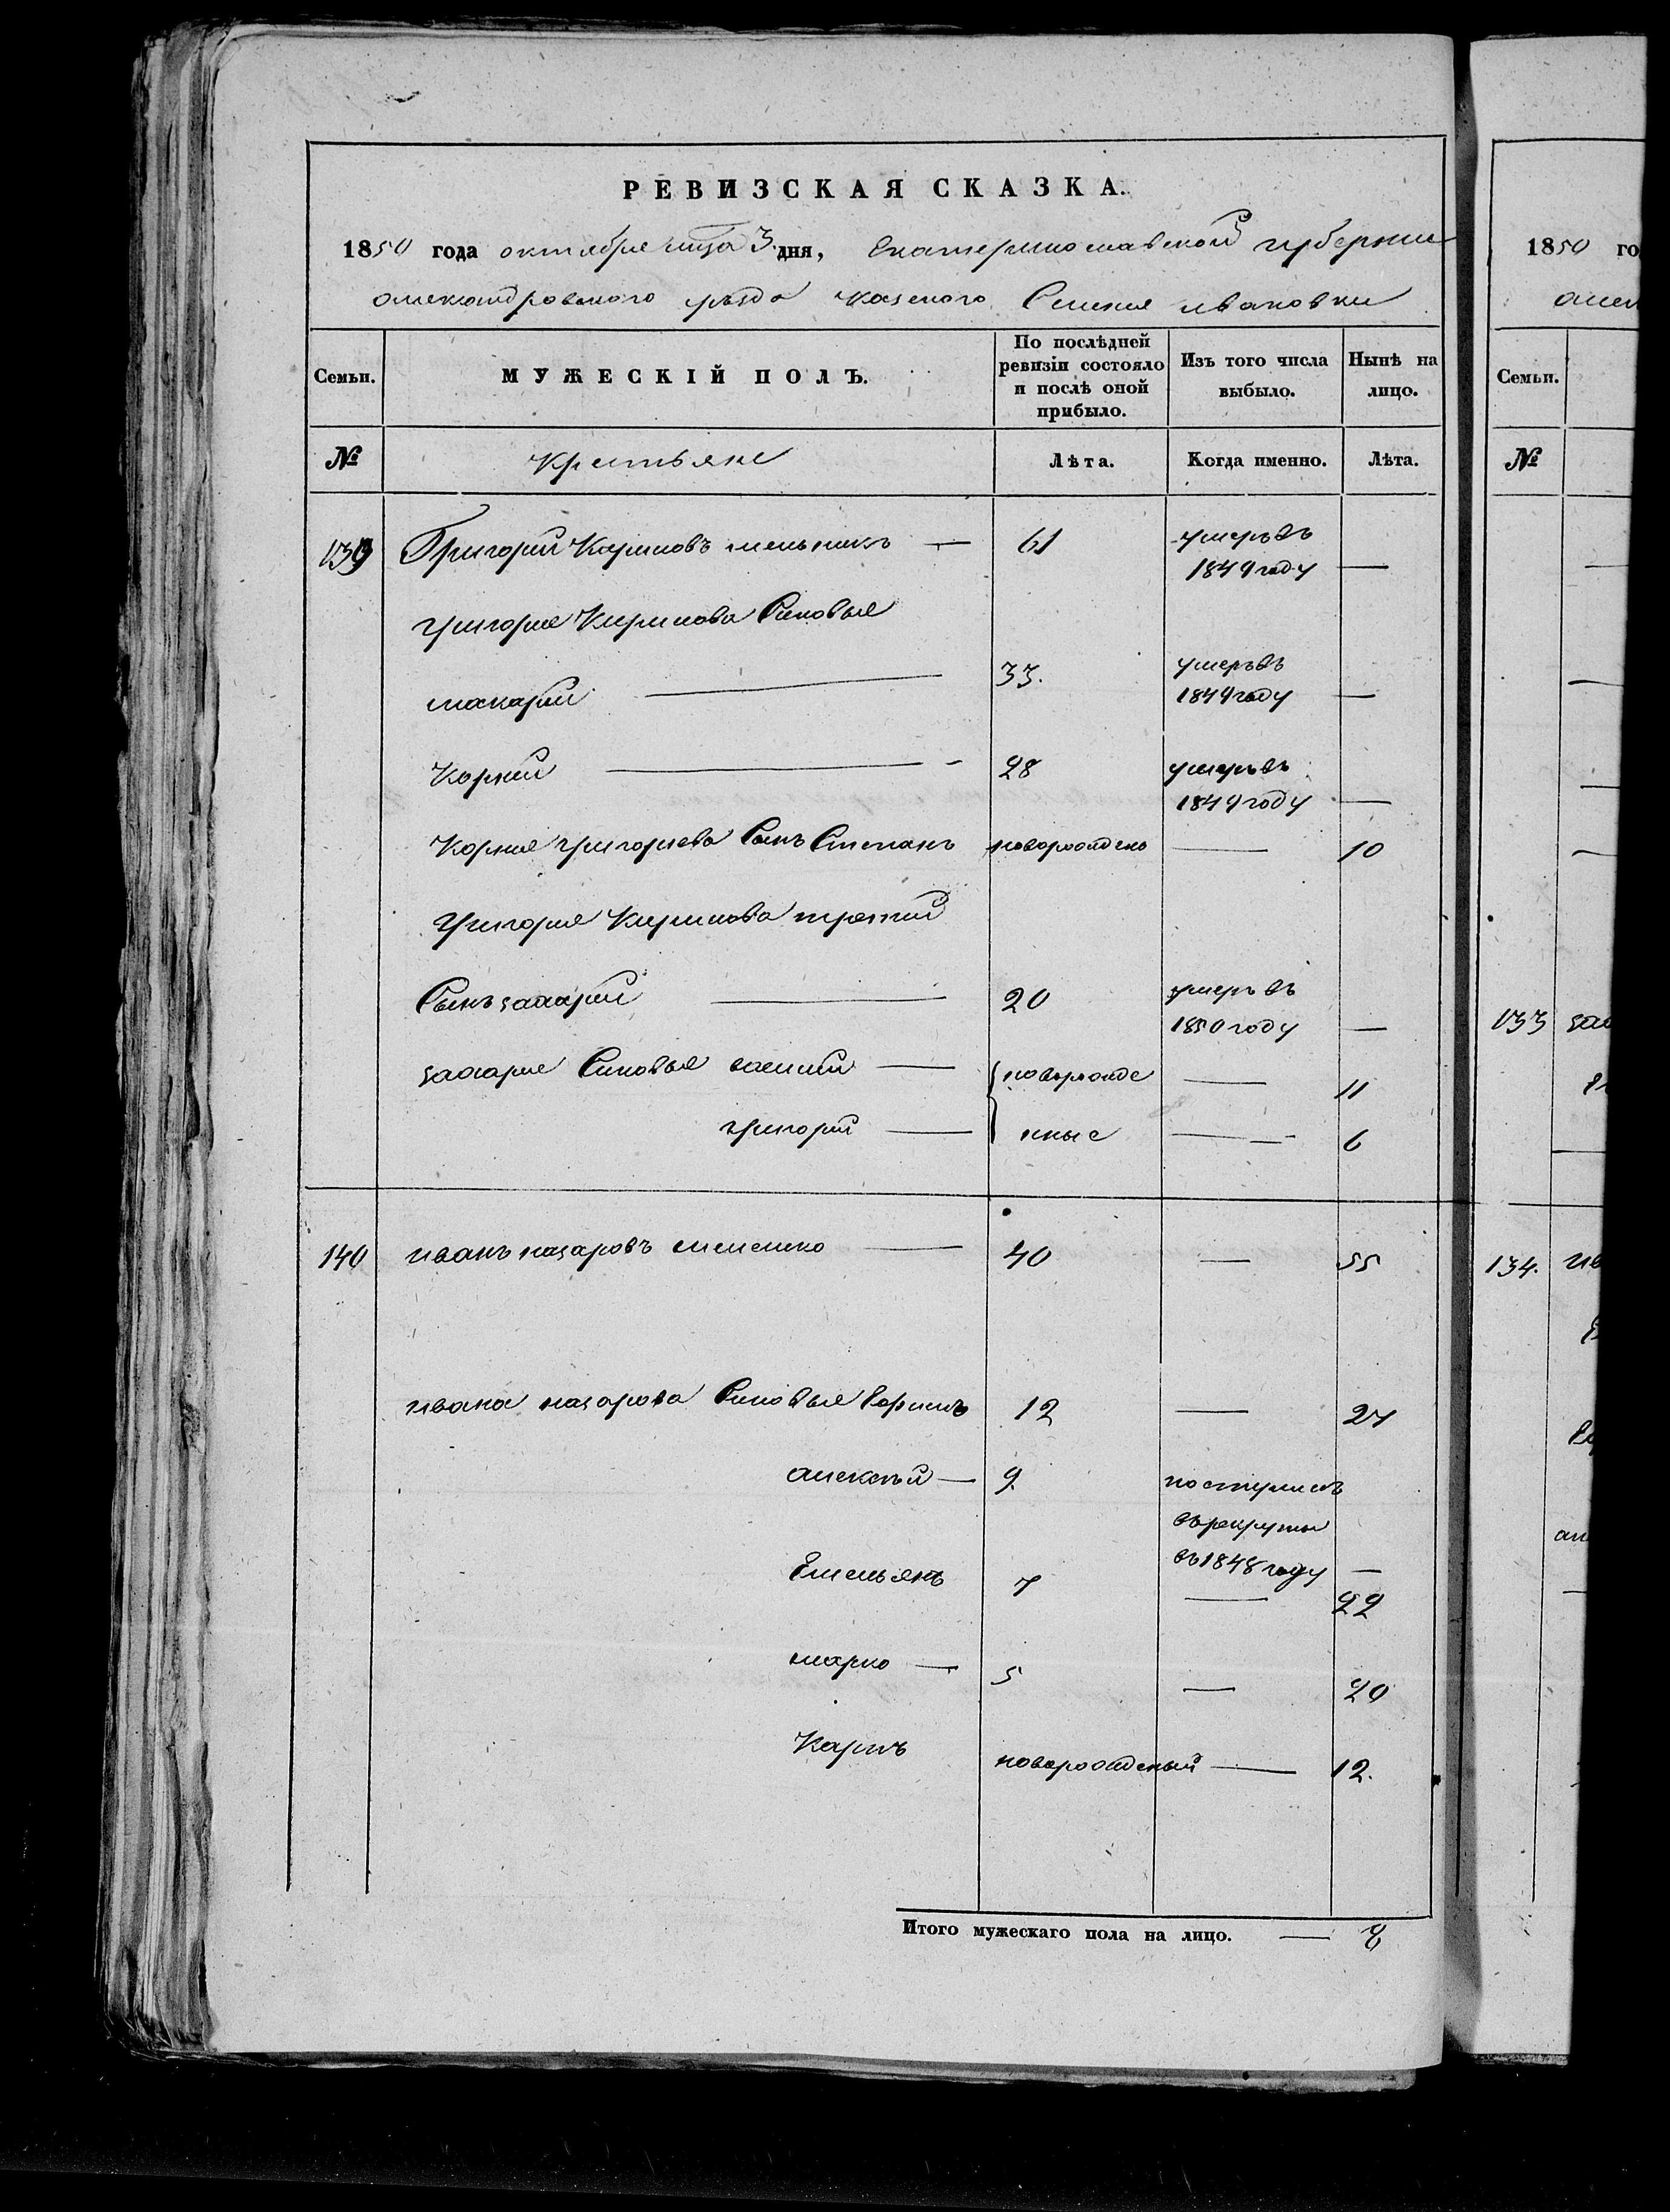 РЕВИЗСКАЯ СКАЗКА.
1850 года октября мца 3 дня, Екатеринославской губернии
александровского уезда казеного Селения ивановки
Семьи.
МУЖЕСКІЙ ПОЛЪ.
По послѣдней ревизіи состояло и послѣ оной прибыло.
Изъ того числа выбыло.
Нынѣ на лицо.
№
Крестьяне
Лѣта.
Когда именно.
Лѣта.
139 Григорий Кириловъ мельникъ — 61 умеръ въ
1849 году —
григория Кирилова Синовья
макарий — 33. умеръ въ
1849 году —
Корний — 28 умеръ въ
1849 году —
Корния григориева Сынъ Степанъ новорожденъ — 10
Григория Кирилова третий
Сынъ захарий — 20 умеръ въ
1850 году —
захария Синовья василий — новорожде — 11
григорий — ные — 6
140 иванъ назаровъ — 40 — 55
ивана назарова Синовья 12 — 27
алексѣй — 9 поступилъ
въ рекруты
въ 1848 году —
Емельянъ 7 — 22
марко — 5 — 20
Карпъ новорожденый — 12.
Итого мужескаго пола на лицо. — 8
1850 го
алек
Семьи.
№
133 заха
134. ив